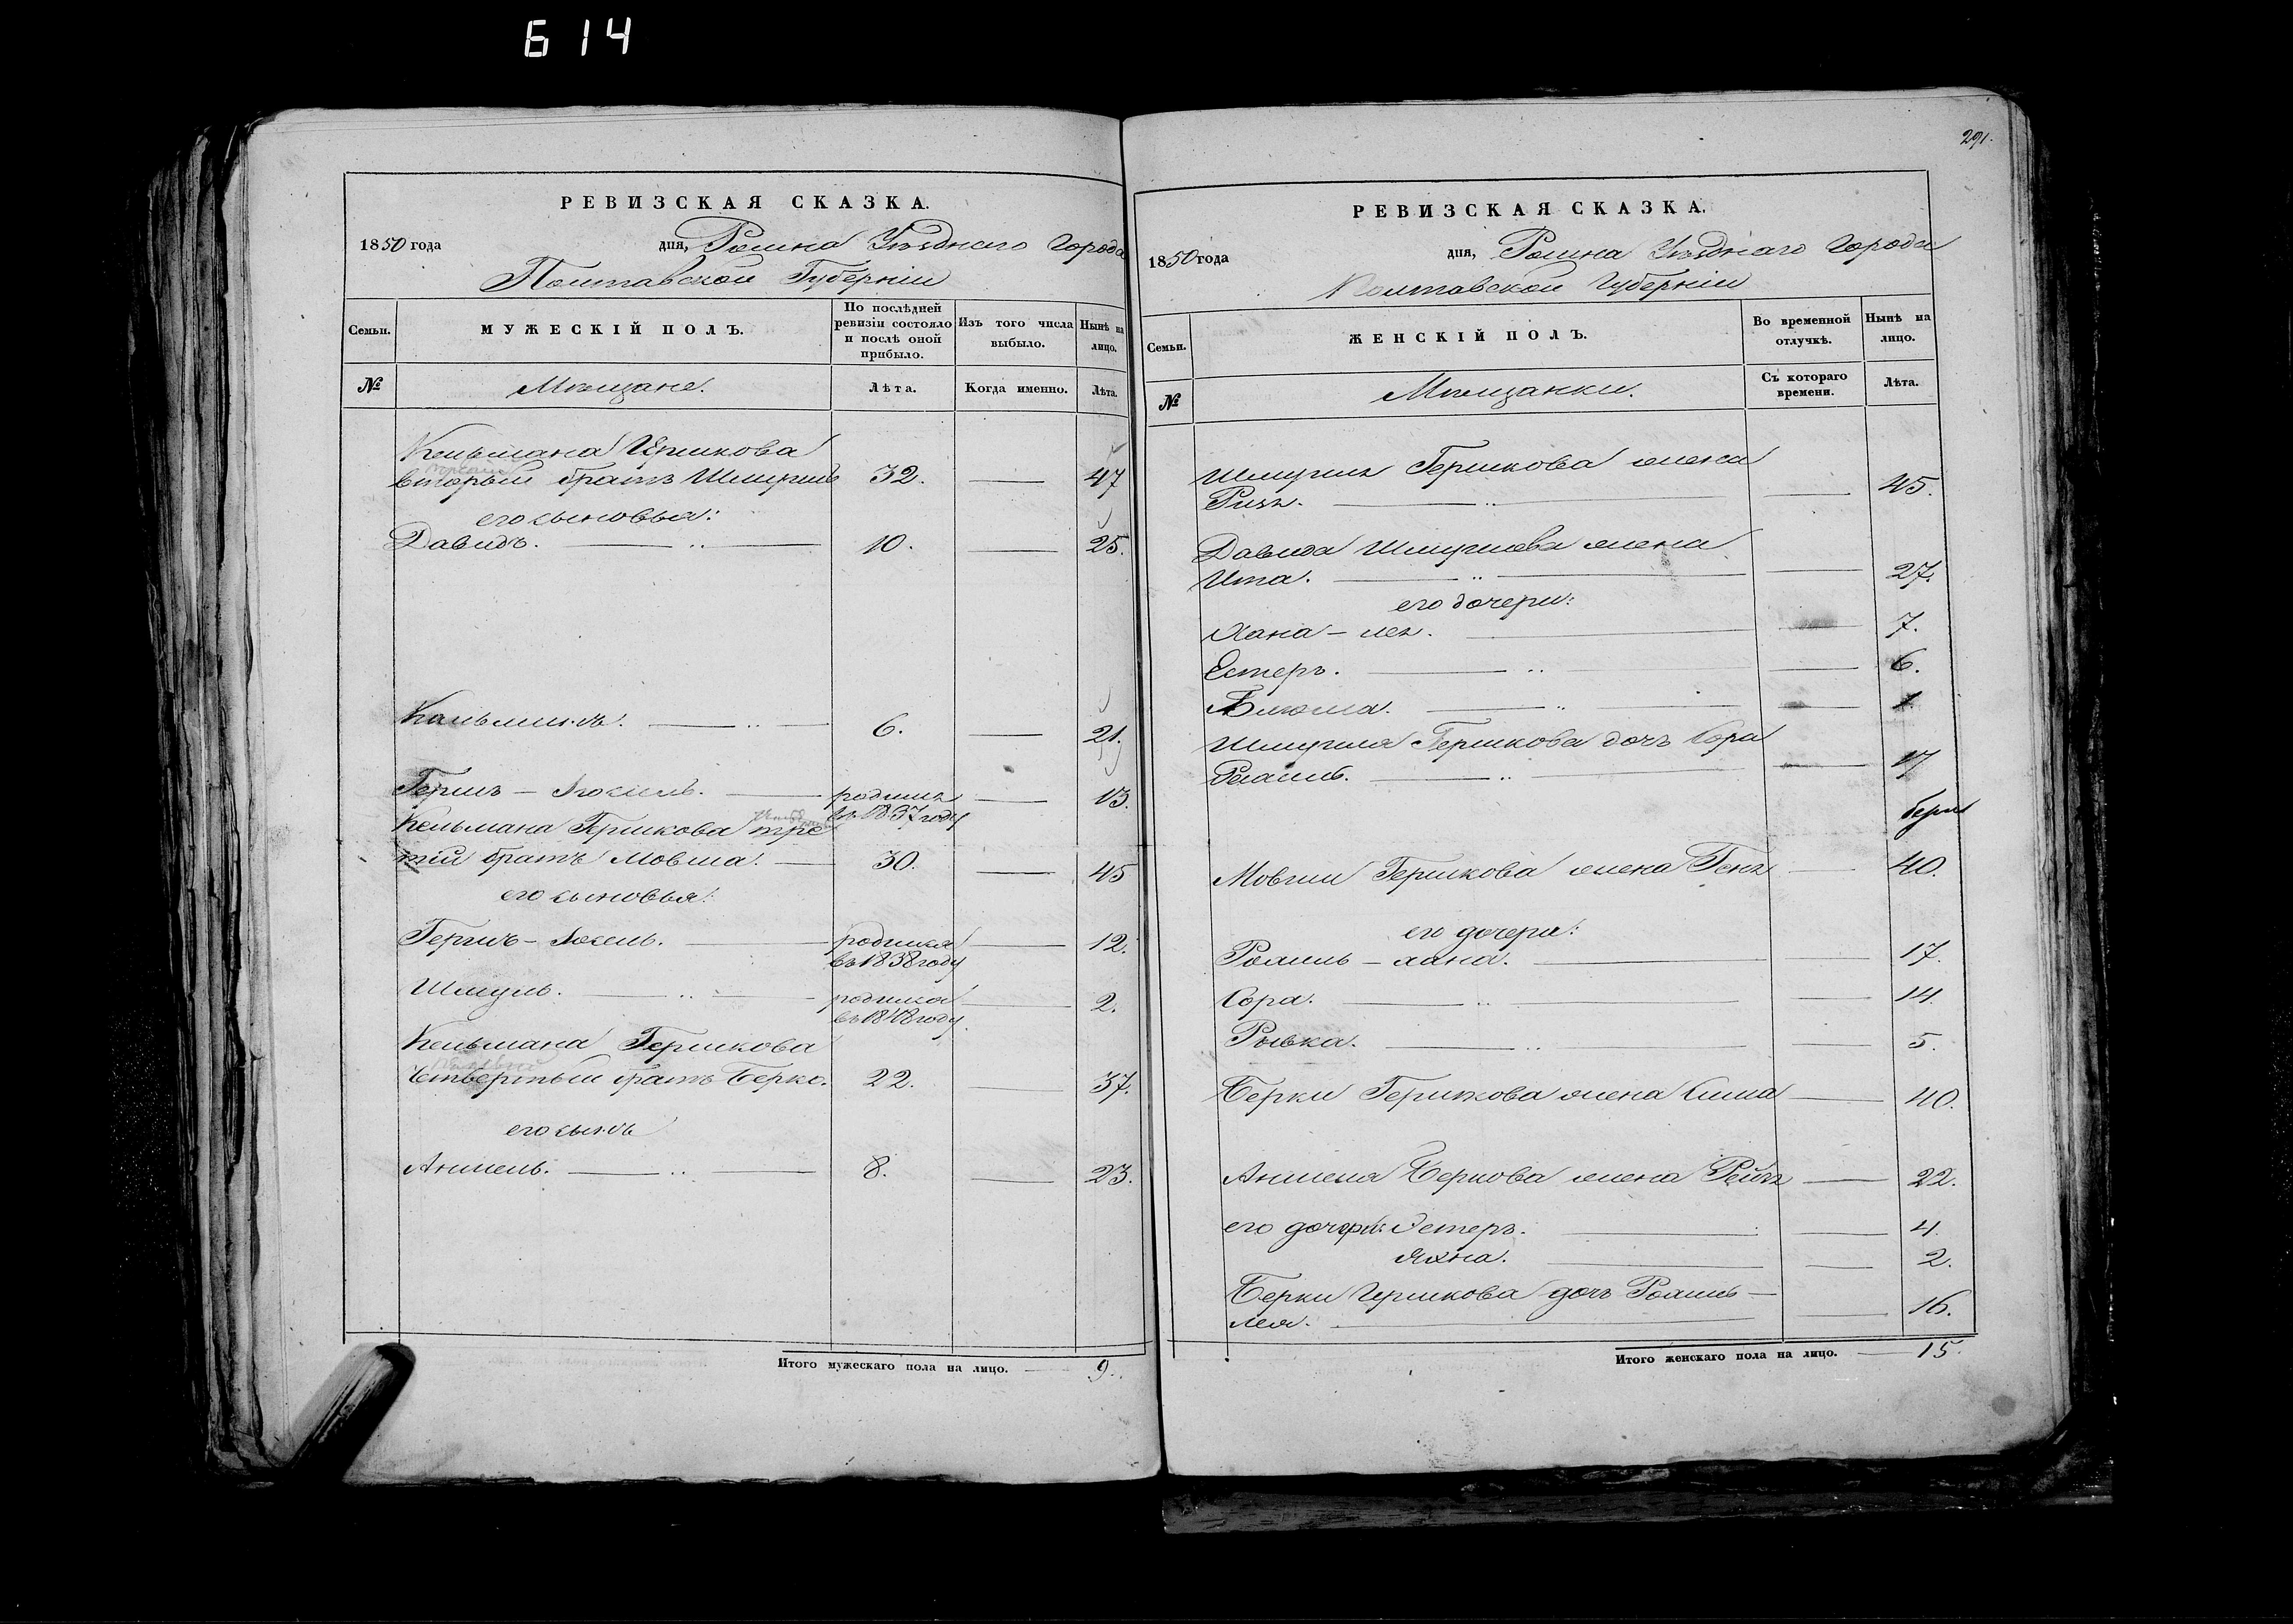 614
РЕВИЗСКАЯ СКАЗКА.
1850 года дня, Ромна Уѣзднаго Города
Полтавской Губерніи
Семьи.
МУЖЕСКІЙ ПОЛЪ.
По послѣдней ревизіи состояло и послѣ оной прибыло.
Изъ того числа выбыло.
Нынѣ на лицо.
№
Мѣщане.
Лѣта.
Когда именно.
Лѣта.
Кельмана Гершкова
вторый братъ Шмуйла 32. 47
его сыновья:
Давидъ. 10. 25.
Кальманъ. 6. 21.
Гершъ - родился 13.
въ 1837 году
Кельмана Гершкова тре
тій братъ Мовша. 30. 45
его сыновья:
Гершъ - родился 12.
въ 1838 году
Шмуль. родился 2.
въ 1848 году
Кельмана Гершкова
Четвертый братъ Берко. 22. 37.
его сынъ
Аншель. 8. 23.
Итого мужескаго пола на лицо. 9.
291.
РЕВИЗСКАЯ СКАЗКА.
1850 года дня, Ромна Уѣзднаго Города
Полтавской Губерніи
Семьи.
ЖЕНСКІЙ ПОЛЪ.
Во временной отлучкѣ.
Нынѣ на лицо.
№
Мѣщанки.
Съ котораго времени.
Лѣта.
Шмуйлы Гершкова жена
45.
Давида Шмуйлова жена
Ита. 27.
его дочери:
Хана - лея. 7.
Естеръ. 6.
1
Шмуйла Гершкова дочь Сора
17
Мовши Гершкова жена Геня 40.
его дочери:
хана. 17.
Сора. 14.
Рывка. 5.
Берки Гершкова жена Сима 40.
Аншеля Беркова жена Рейзя 22.
его дочери: Эстеръ. 4.
Яхна. 2.
Берки Гершкова дочь
лея. 16.
Итого женскаго пола на лицо. 15.